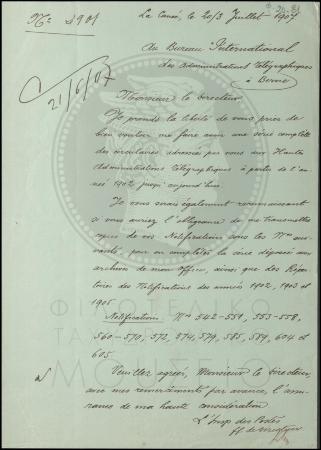 No 2901
La Canée, le 20/3 Juillet 1907
21/6/07
Au Bureau International
des Administrations Télégraphiques
à Berne
Monsieur le Directeur
Je prends la liberté de vous prier de
bien vouloir me faire une série complète
des circulaires adressées par vous aux Hautes
Administrations Télégraphiques à partir de l'an
née 1902 jusqu'aujourd'hui.
Je vous serais également reconnaissant
si vous auriez l'obligeance de me transmettre
copie de vos Notifications sous les Nos sui-
vants, pour en compléter la série déposée aux
archives de mon Office, ainsi que des Réper
toires des Notifications des années 1902, 1903 et
1905
Notifications Nos 542-551, 553-558,
560-570, 572, 574, 579, 585, 589, 604 et
605
Veuillez agréer, Monsieur le Directeur,
avec mes remerciements par avance, l'assu-
rance de ma haute considération
L'Insp. des Postes
ΦΙΛΟΤΕΛΙΚΟ
ΤΑ
ΜΟΥΣΕΙΟ